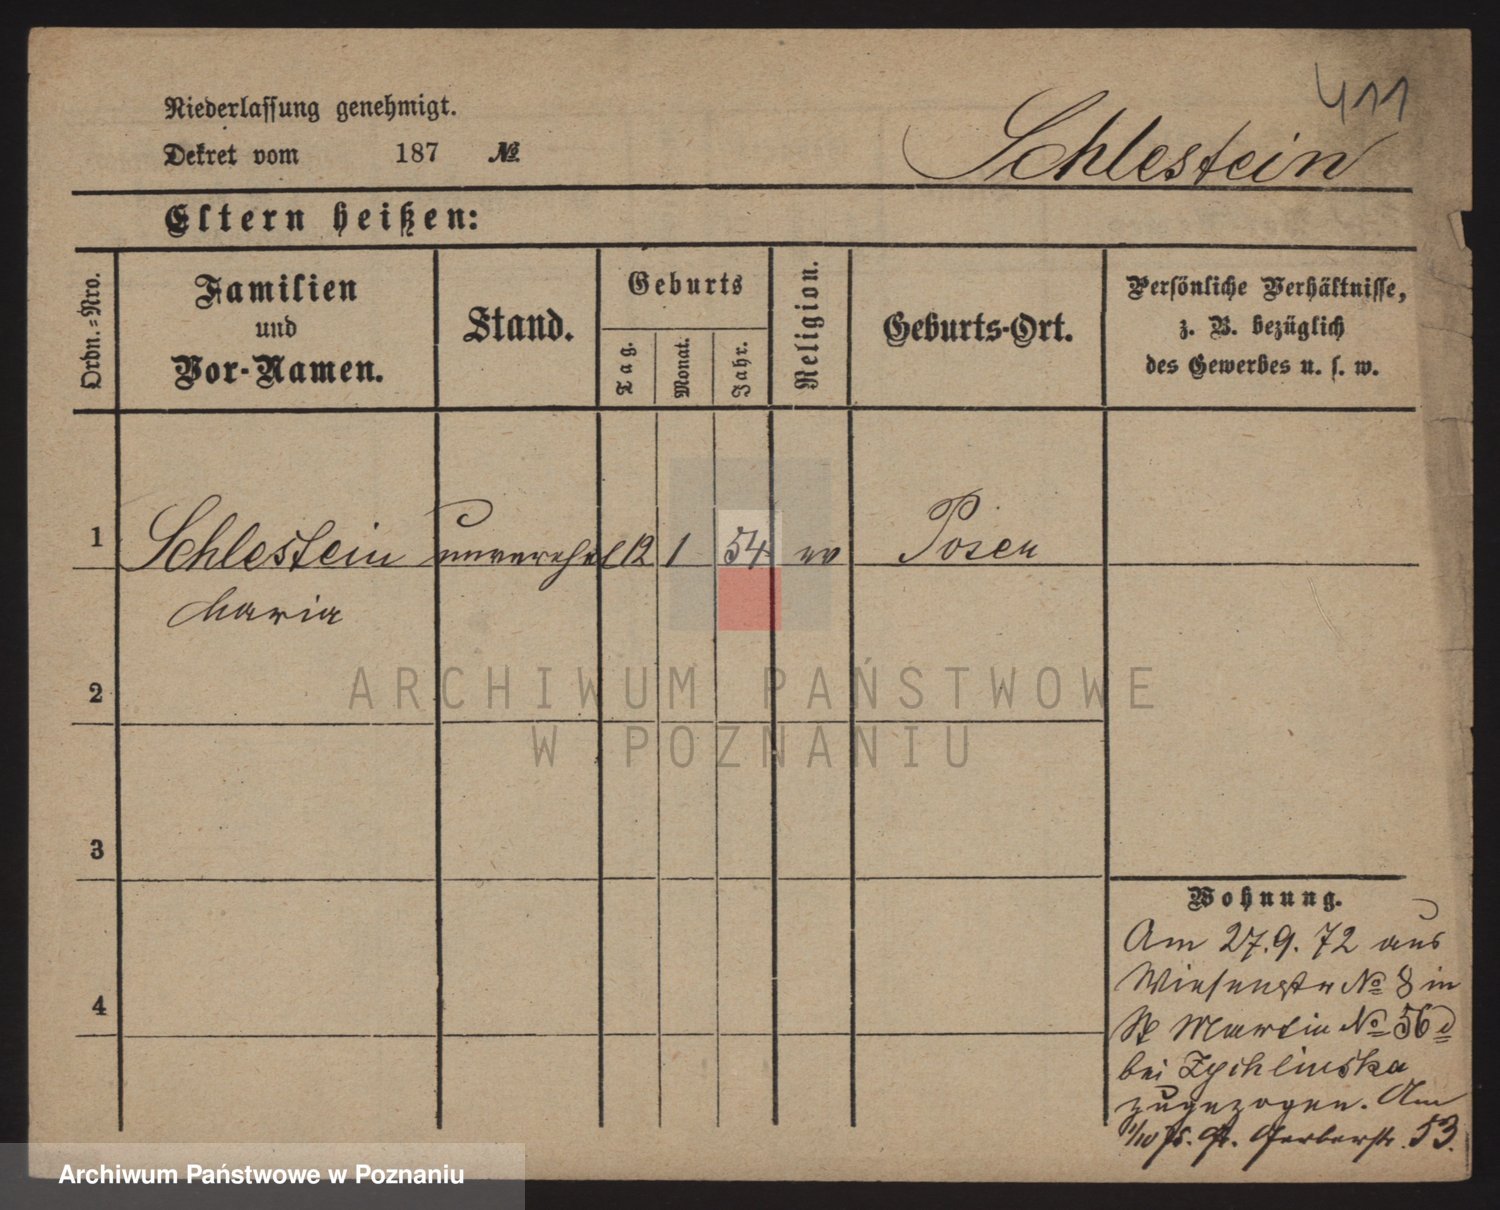 411
Niederlassung genehmigt.
Dekret vom 187 №
Schlestein
Eltern heißen:
Ordn.=Nro.
Familien
und
Vor-Namen.
Stand.
Geburts
Tag.
Monat.
Jahr.
Religion.
Geburts-Ort.
Persönliche Verhältnisse,
z. B. bezüglich
des Gewerbes u. s. w.
1 Schlestein unverehel 12 1 54 ev Posen
Maria
2
3
4
Wohnung.
Am 27.9.72 aus
Wiesenstr № 8 in
St Martin № 56 d
bei Zychlinska
zugezogen. Am
1/10 75. Gr. Gerberstr. 53.
ARCHIWUM PAŃSTWOWE
W POZNANIU
Archiwum Państwowe w Poznaniu